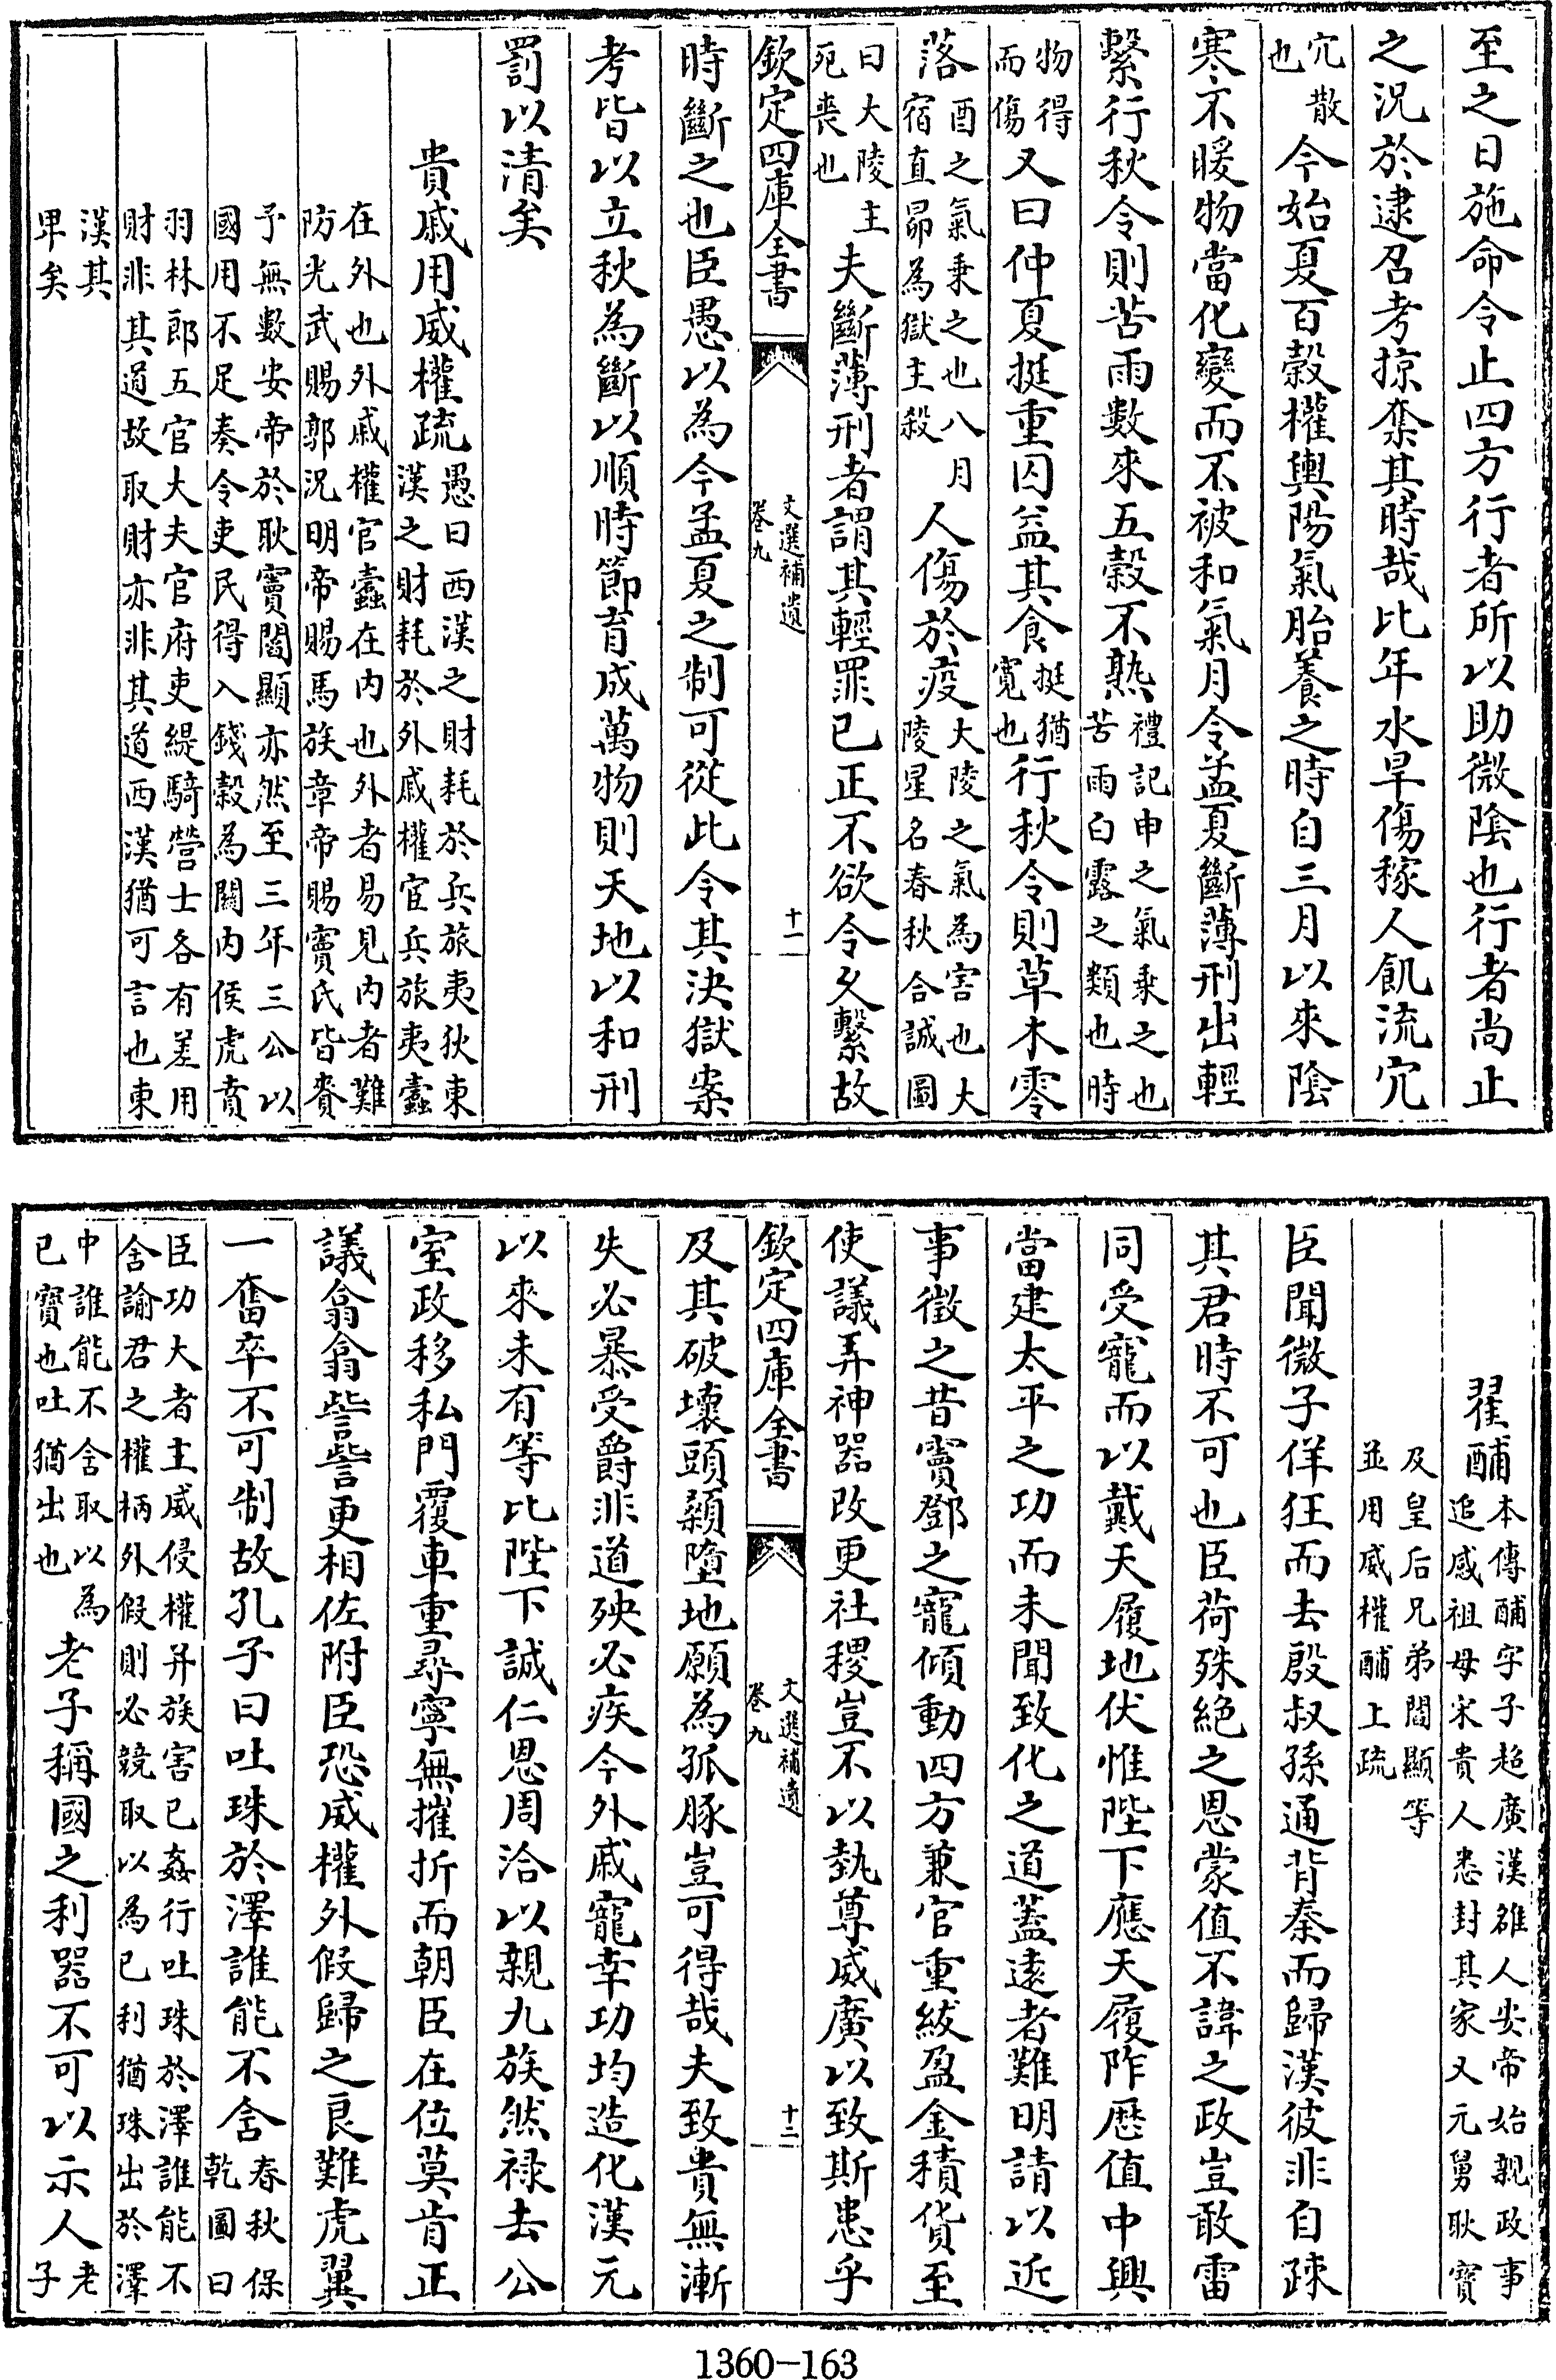 至之日施命令止四方行者所以助微陰也行者尚止
之況於逮召考掠奪其時哉比年水旱傷稼人飢流宂
宂散
也
今始夏百榖權輿陽氣胎養之時自三月以來陰
寒不暖物當化變而不被和氣月令孟夏斷薄刑出輕
繫行秋令則苦雨數來五榖不熟
禮記申之氣乗之也
苦雨白露之類也時
物得
而傷
又曰仲夏挺重囚益其食
挺猶
寛也
行秋令則草木零
落
酉之氣乗之也八月
宿直昴為獄主殺
人傷於疫
大陵之氣為害也大
陵星名春秋合誠圖
曰大陵主
死喪也
夫斷薄刑者謂其輕罪已正不欲令久繫故
欽定四庫全書
文選補遺
卷九
十一
時斷之也臣愚以為今孟夏之制可從此令其決獄案
考皆以立秋為斷以順時節育成萬物則天地以和刑
罰以清矣
貴戚用威權疏
愚曰西漢之財耗於兵旅夷狄東
漢之財耗於外戚權宦兵旅夷蠹
在外也外戚權官蠹在内也外者易見内者難
防光武賜郭況明帝賜馬族章帝賜竇氏皆賚
予無數安帝於耿竇閻顯亦然至三年三公以
國用不足奏令吏民得入錢榖為關内侯虎賁
羽林郎五官大夫官府吏緹騎營士各有差用
財非其道故取財亦非其道西漢猶可言也東
漢其
卑矣
翟酺
本傳酺字子超廣漢雒人安帝始親政事
追感祖母宋貴人悉封其家又元舅耿寳
及皇后兄弟閻顯等
並用威權酺上疏
臣聞微子佯狂而去殷叔孫通背秦而歸漢彼非自疎
其君時不可也臣荷殊絶之恩蒙值不諱之政豈敢雷
同受寵而以戴天履地伏惟陛下應天履阼歴值中興
當建太平之功而未聞致化之道蓋逺者難明請以近
事徴之昔竇鄧之寵傾動四方兼官重紱盈金積貨至
使議弄神器改更社稷豈不以埶尊威廣以致斯患乎
欽定四庫全書
文選補遺
卷九
十二
及其破壞頭顙墮地願為孤豚豈可得哉夫致貴無漸
失必暴受爵非道殃必疾今外戚寵幸功均造化漢元
以來未有等比陛下誠仁恩周洽以親九族然禄去公
室政移私門覆車重尋寧無摧折而朝臣在位莫肯正
議翕翕訾訾更相佐附臣恐威權外假歸之良難虎翼
一奮卒不可制故孔子曰吐珠於澤誰能不含
春秋保
乾圖曰
臣功大者主威侵權并族害已姦行吐珠於澤誰能不
含諭君之權柄外假則必競取以為已利猶珠出於澤
中誰能不含取以為
已寳也吐猶出也
老子稱國之利器不可以示人
老
子
1360-163